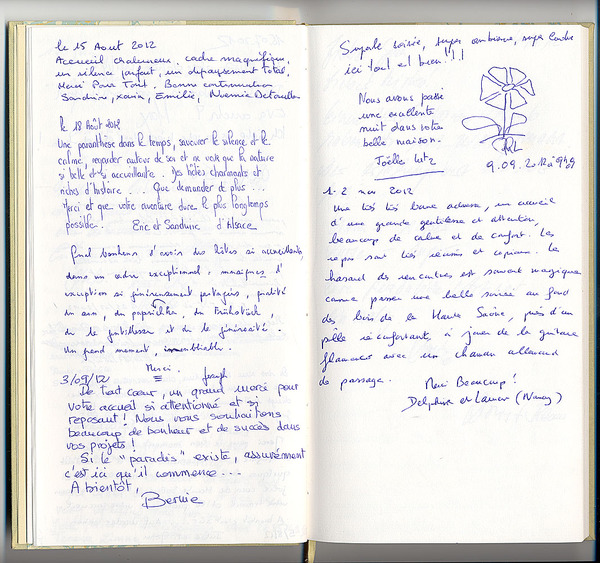 le 15 Aout 2012
Accueuil chaleureux, cadre magnifique,
un silence parfait, un depaysement total.
Merci Pour Tout. Bonne continuation
Sandrine, Emilie, Noémie
le 18 Août 2012
Une paranthèse dans le temps, savourer le silence et le
calme, regarder autour de soi et ne voir que la nature
si belle et si accueillante. Des hôtes charmants et
riches d'histoire... Que demander de plus ...
Merci et que votre aventure dure le plus longtemps
possible. Eric et Sandrine d'Alsace
Quel bonheur d'avoir des hôtes si accueillants
dans un cadre exceptionnel, musiques d'
exception si généreusement partagées, qualité
du Frühstück,
de la gentillesse et de la générosité.
Un grand moment, inoubliable.
Merci. Joseph
3/09/12
De tout cœur, un grand merci pour
votre accueil si attentionné et si
reposant! Nous vous souhaitons
beaucoup de bonheur et de succès dans
vos projets!
Si le "paradis" existe, assurément
c'est ici qu'il commence...
A bientôt,
Bernie
Superbe soirée, super ambiance, super cadre
ici tout est bien!!!
Nous avons passé
une excellente
nuit dans votre
belle maison.
Joëlle Lutz
9.09.2012
2 nov 2012
Une très très bonne adresse, un accueil
d'une grande gentillesse et attention,
beaucoup de calme et de confort. Les
repas sont très réussis et copieux. Le
hasard des rencontres est souvent magique
comme passer une belle soirée au fond
des bois de la Haute Saône, près d'un
pôële réconfortant, à jouer de la guitare
flamenco avec un chaman allemand
de passage.
Merci Beaucoup!
Delphine et Laurent (Nancy)